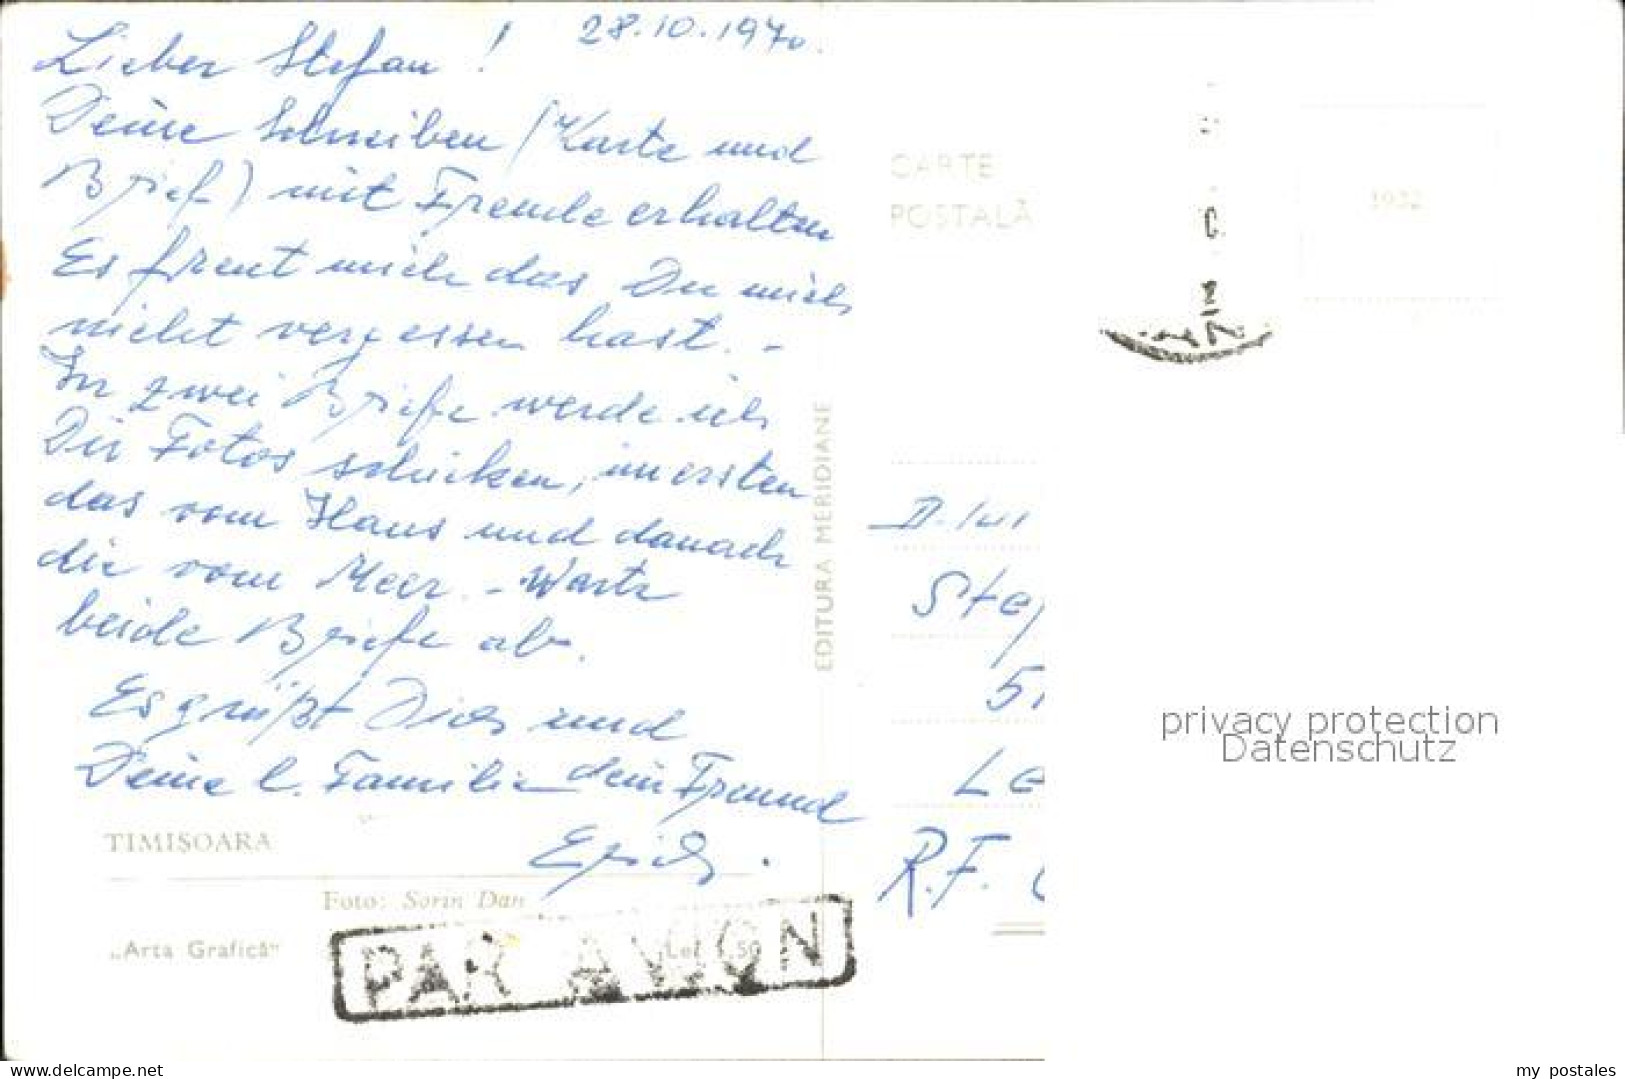 28.10.1970.
Lieber Stefan!
Deine Schreiben (Karte und
Brief) mit Freude erhalten
Es freut mich das Du mich
nicht vergessen hast. -
In zwei Briefe werde ich
Dir Fotos schicken, im ersten
das vom Haus und danach
die vom Meer. - Warte
beide Briefe ab.
Es grüßt Dich und
Deine l. Familie dein Freund
Erich.
TIMIȘOARA
Foto: Sorin Dan
„Arta Grafică”
Lei 1,50
PAR AVION
EDITURA MERIDIANE
CARTE
POȘTALĂ
1932
D.lui
Stef
51
Le
R.F.
privacy protection
Datenschutz
delcampe.net
my_postales